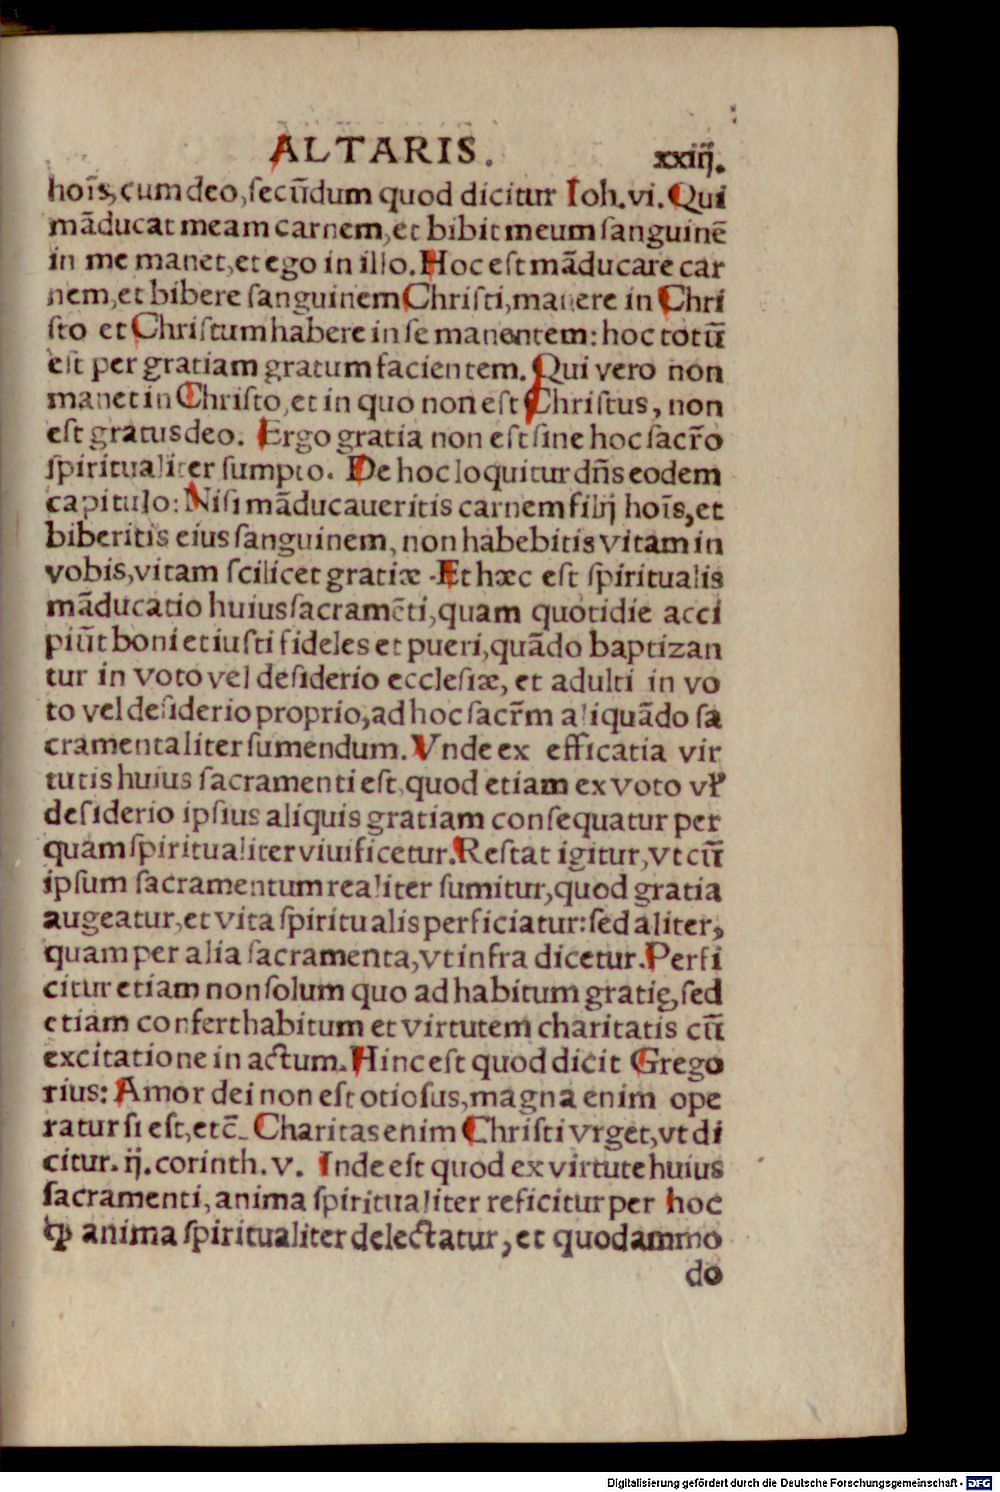 ALTARIS. xxiij.
hoīs, cum deo, ſecūdum quod dicitur Ioh. vi. Qui
māducat meam carnem, et bibit meum ſanguinē
in me manet, et ego in illo. Hoc eſt māducare car
nem, et bibere ſanguinem Chriſti, manere in Chri
ſto et Chriſtum habere in ſe manentem: hoc totū
eſt per gratiam gratum facientem. Qui vero non
manet in Chriſto, et in quo non eſt Chriſtus, non
eſt gratus deo. Ergo gratia non eſt ſine hoc ſacr̄o
ſpiritualiter ſumpto. De hoc loquitur dn̄s eodem
capitulo: Niſi māducaueritis carnem filij hoīs, et
biberitis eius ſanguinem, non habebitis vitam in
vobis, vitam ſcilicet gratiæ. Et hæc eſt ſpiritualis
māducatio huius ſacramēti, quam quotidie acci
piūt boni et iuſti fideles et pueri, quādo baptizan
tur in voto vel deſiderio eccleſiæ, et adulti in vo
to vel deſiderio proprio, ad hoc ſacr̄m aliquādo ſa
cramentaliter ſumendum. Vnde ex efficatia vir
tutis huius ſacramenti eſt, quod etiam ex voto vƚ
deſiderio ipſius aliquis gratiam conſequatur per
quam ſpiritualiter viuificetur. Reſtat igitur, vt cū
ipſum ſacramentum realiter ſumitur, quod gratia
augeatur, et vita ſpiritualis perficiatur: ſed aliter,
quam per alia ſacramenta, vt infra dicetur. Perfi
citur etiam non ſolum quo ad habitum gratię, ſed
etiam confert habitum et virtutem charitatis cū
excitatione in actum. Hinc eſt quod dicit Grego
rius: Amor dei non eſt otioſus, magna enim ope
ratur ſi eſt, etc̄. Charitas enim Chriſti vrget, vt di
citur. ij. corinth. v. Inde eſt quod ex virtute huius
ſacramenti, anima ſpiritualiter reficitur per hoc
ꝙ anima ſpiritualiter delectatur, et quodammo
do
Digitalisierung gefördert durch die Deutsche Forschungsgemeinschaft - DFG